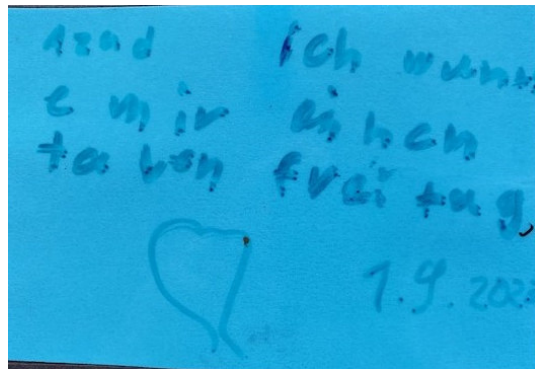 Azad Ich wun
e mir einhen
ta bon frei tag,
1.9.202